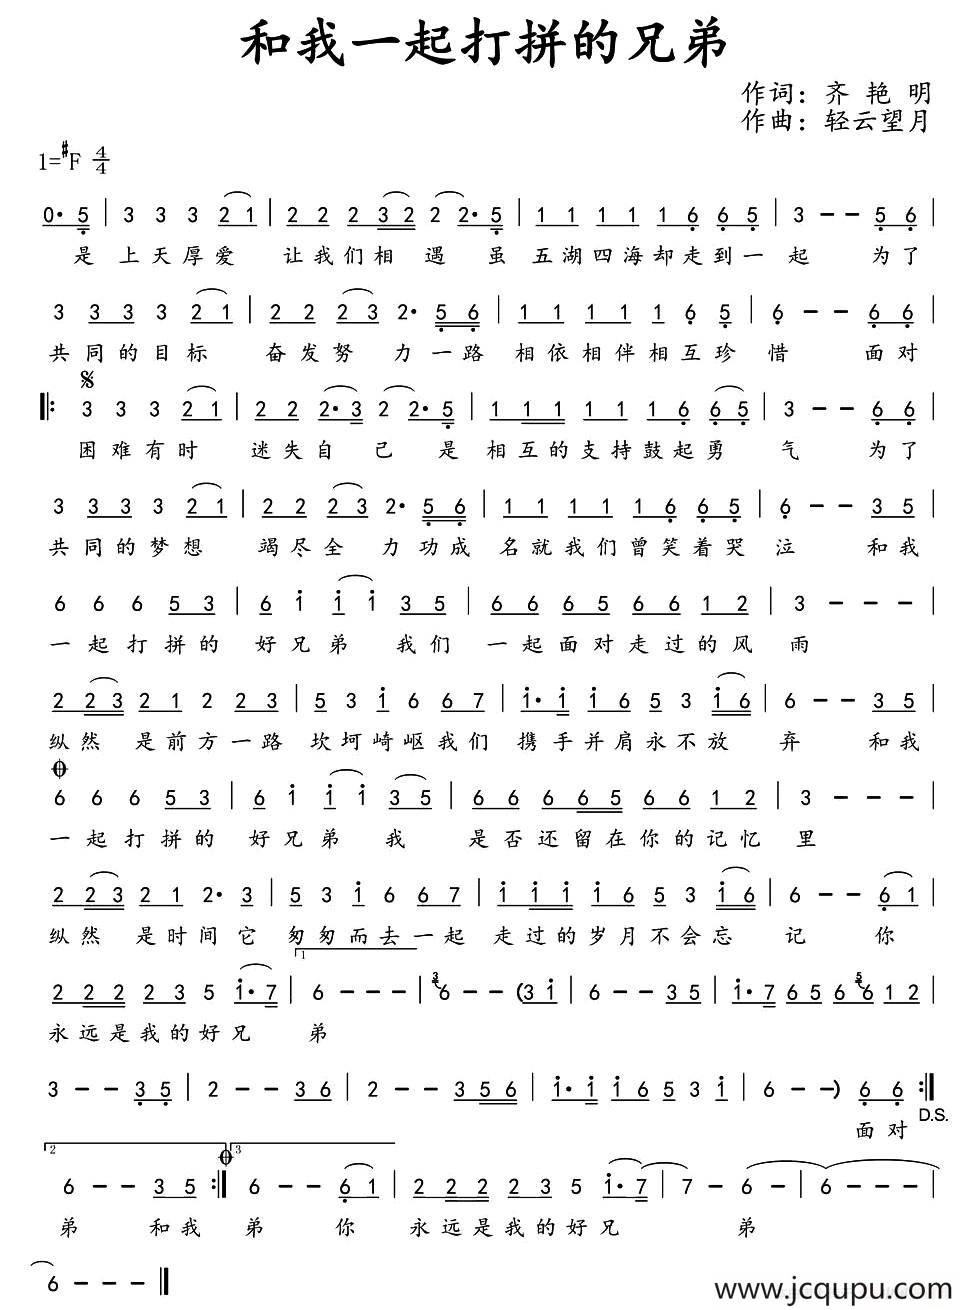 和我一起打拼的兄弟
作词：齐 艳 明
作曲：轻云望月
1=#F 4/4
0· 5 | 3 3 3 2 1 | 2 2 2 3 2 2 2· 5 | 1 1 1 1 1 6 6 5 | 3 - - 5 6 |
是 上天厚爱 让我们相 遇 虽 五湖四海却走到一 起 为了
3 3 3 3 2 1 | 2 2 2 3 2· 5 6 | 1 1 1 1 1 6 5 | 6 - - 6 6 |
共同的目标 奋发努 力一路 相依相伴相互珍 惜 面对
𝄋
‖: 3 3 3 2 1 | 2 2 2· 3 2 2· 5 | 1 1 1 1 1 1 6 6 5 | 3 - - 6 6 |
困难有时 迷失自 己 是 相互的支持鼓起勇 气 为了
3 3 3 3 2 1 | 2 2 2 3 2· 5 6 | 1 1 1 1 1 6 6 5 | 6 - - 3 5 |
共同的梦想 竭尽全 力功成 名就我们曾笑着哭 泣 和我
6 6 6 5 3 | 6 i i i 3 5 | 6 6 6 5 6 6 1 2 | 3 - - - |
一起打拼的 好兄弟 我们 一起面对走过的风 雨
2 2 3 2 1 2 2 3 | 5 3 i 6 6 7 | i· i i 6 5 3 i 6 | 6 - - 3 5 |
纵然 是前方一路 坎坷崎岖我们 携手并肩永不放 弃 和我
𝄌
6 6 6 5 3 | 6 i i i 3 5 | 6 6 6 6 5 6 6 1 2 | 3 - - - |
一起打拼的 好兄弟 我 是否还留在你的记忆 里
2 2 3 2 1 2· 3 | 5 3 i 6 6 7 | i i i i 6 5 3 i 6 | 6 - - 6 1 |
纵然 是时间它 匆匆而去一起 走过的岁月不会忘 记 你
1
2 2 2 2 3 5 i· 7 | 6 - - | 3 6 - - (3 i | 6 - - 3 5 | i· 7 6 5 6 5 6 1 2 |
永远是我的好兄 弟
3 - - 3 5 | 2 - - 3 6 | 2 - - 3 5 6 | i· i i 6 5 3 i | 6 - -) 6 6 :‖
D.S.
面对
2 𝄌 3
6 - - 3 5 :‖ 6 - - 6 1 | 2 2 2 2 3 5 i· 7 | 7 - 6 - | 6 - - - |
弟 和我 弟 你 永远是我的好兄 弟
6 - - ‖
www.jcqupu.com